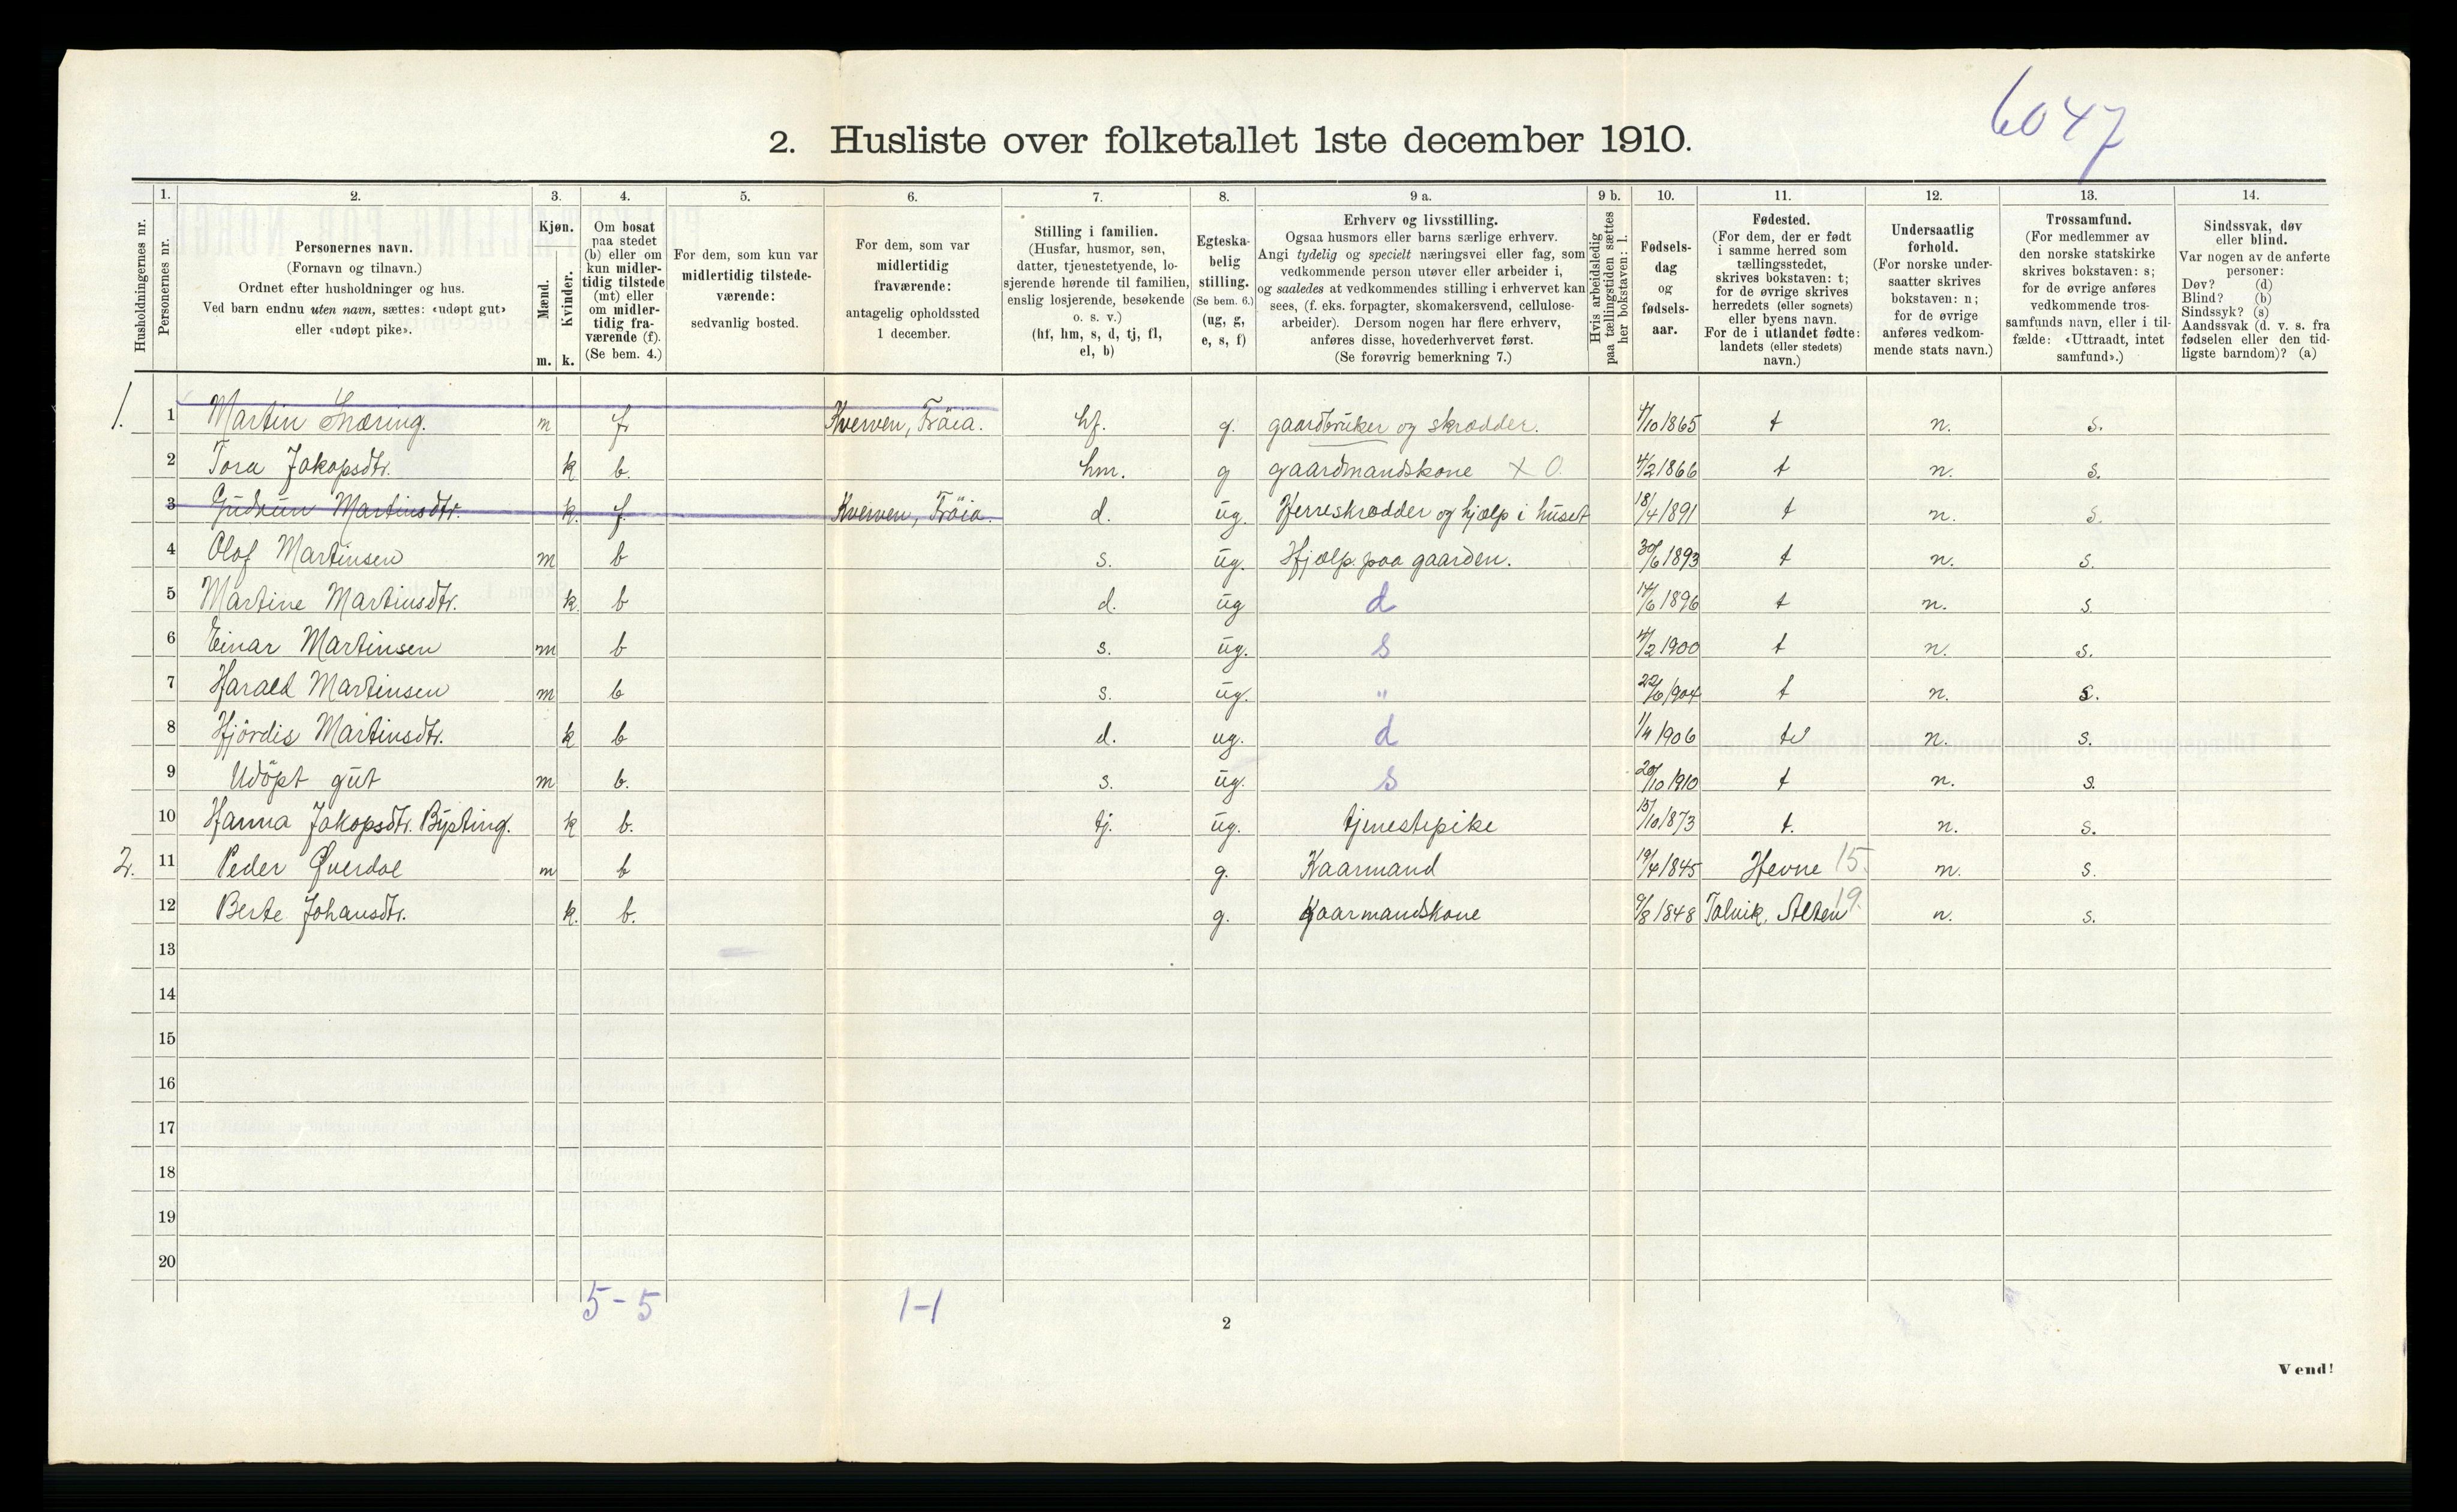 6047
2. Husliste over folketallet 1ste december 1910.
Husholdningernes nr.
1. Personernes nr.
2. Personernes navn.
(Fornavn og tilnavn.)
Ordnet efter husholdninger og hus.
Ved barn endnu uten navn, sættes: «udøpt gut»
eller «udøpt pike».
3. Kjøn.
Mænd. m.
Kvinder. k.
4. Om bosat
paa stedet
(b) eller om
kun midler-
tidig tilstede
(mt) eller
om midler-
tidig fra-
værende (f).
(Se bem. 4.)
5. For dem, som kun var
midlertidig tilstede-
værende:
sedvanlig bosted.
6. For dem, som var
midlertidig
fraværende:
antagelig opholdssted
1 december.
7. Stilling i familien.
(Husfar, husmor, søn,
datter, tjenestetyende, lo-
sjerende hørende til familien,
enslig losjerende, besøkende
o. s. v.)
(hf, hm, s, d, tj, fl,
el, b)
8. Egteska-
belig
stilling.
(Se bem. 6.)
(ug, g,
e, s, f)
9 a. Erhverv og livsstilling.
Ogsaa husmors eller barns særlige erhverv.
Angi tydelig og specielt næringsvei eller fag, som
vedkommende person utøver eller arbeider i,
og saaledes at vedkommendes stilling i erhvervet kan
sees, (f. eks. forpagter, skomakersvend, cellulose-
arbeider). Dersom nogen har flere erhverv,
anføres disse, hovederhvervet først.
(Se forøvrig bemerkning 7.)
9 b. Hvis arbeidsledig
paa tællingstiden sættes
her bokstaven: l.
10. Fødsels-
dag
og
fødsels-
aar.
11. Fødested.
(For dem, der er født
i samme herred som
tællingsstedet,
skrives bokstaven: t;
for de øvrige skrives
herredets (eller sognets)
eller byens navn.
For de i utlandet fødte:
landets (eller stedets)
navn.)
12. Undersaatlig
forhold.
(For norske under-
saatter skrives
bokstaven: n;
for de øvrige
anføres vedkom-
mende stats navn.)
13. Trossamfund.
(For medlemmer av
den norske statskirke
skrives bokstaven: s;
for de øvrige anføres
vedkommende tros-
samfunds navn, eller i til-
fælde: «Uttraadt, intet
samfund».)
14. Sindssvak, døv
eller blind.
Var nogen av de anførte
personer:
Døv? (d)
Blind? (b)
Sindssyk? (s)
Aandssvak (d. v. s. fra
fødselen eller den tid-
ligste barndom)? (a)
1. 1 Martin m f. Kverven, Fröia. hf. g. gaardbruker og skrædder. 4/10 1865 t n. s.
2 Tora Jakopsdtr. k b. hm. g gaardmandskone X O. 4/2 1866 t n. s.
3 Gudrun Martinsdtr. k. f. Kverven, Fröia. d. ug. Herreskrædder og hjælp i huset 18/4 1891 t n. s.
4 Olof Martinsen m b s. ug. Hjælp paa gaarden. 30/6 1893 t n. s.
5 Martine Martinsdtr. k. b d. ug d 14/6 1896 t n. s.
6 Einar Martinsen m b s. ug. s 4/2 1900 t n. s.
7 Harald Martinsen m b s. ug. " 22/6 1904 t n. s.
8 Hjördis Martinsdtr. k b d. ug. d 1/4 1906 t n. s.
9 Udöpt gut m b. s. ug. s 20/10 1910 t n. s.
10 Hanna Jakopsdtr. Bysting. k b. tj. ug. tjenestepike 15/10 1873 t. n. s.
2. 11 Peder Øverdal m b g. Kaarmand 19/4 1845 Hevne 15. n. s.
12 Berte Johansdtr. k. b. g. Kaarmandskone 9/8 1848 Talvik, Alten 19. n. s.
13
14
15
16
17
18
19
20
5-5 1-1
2
Vend!